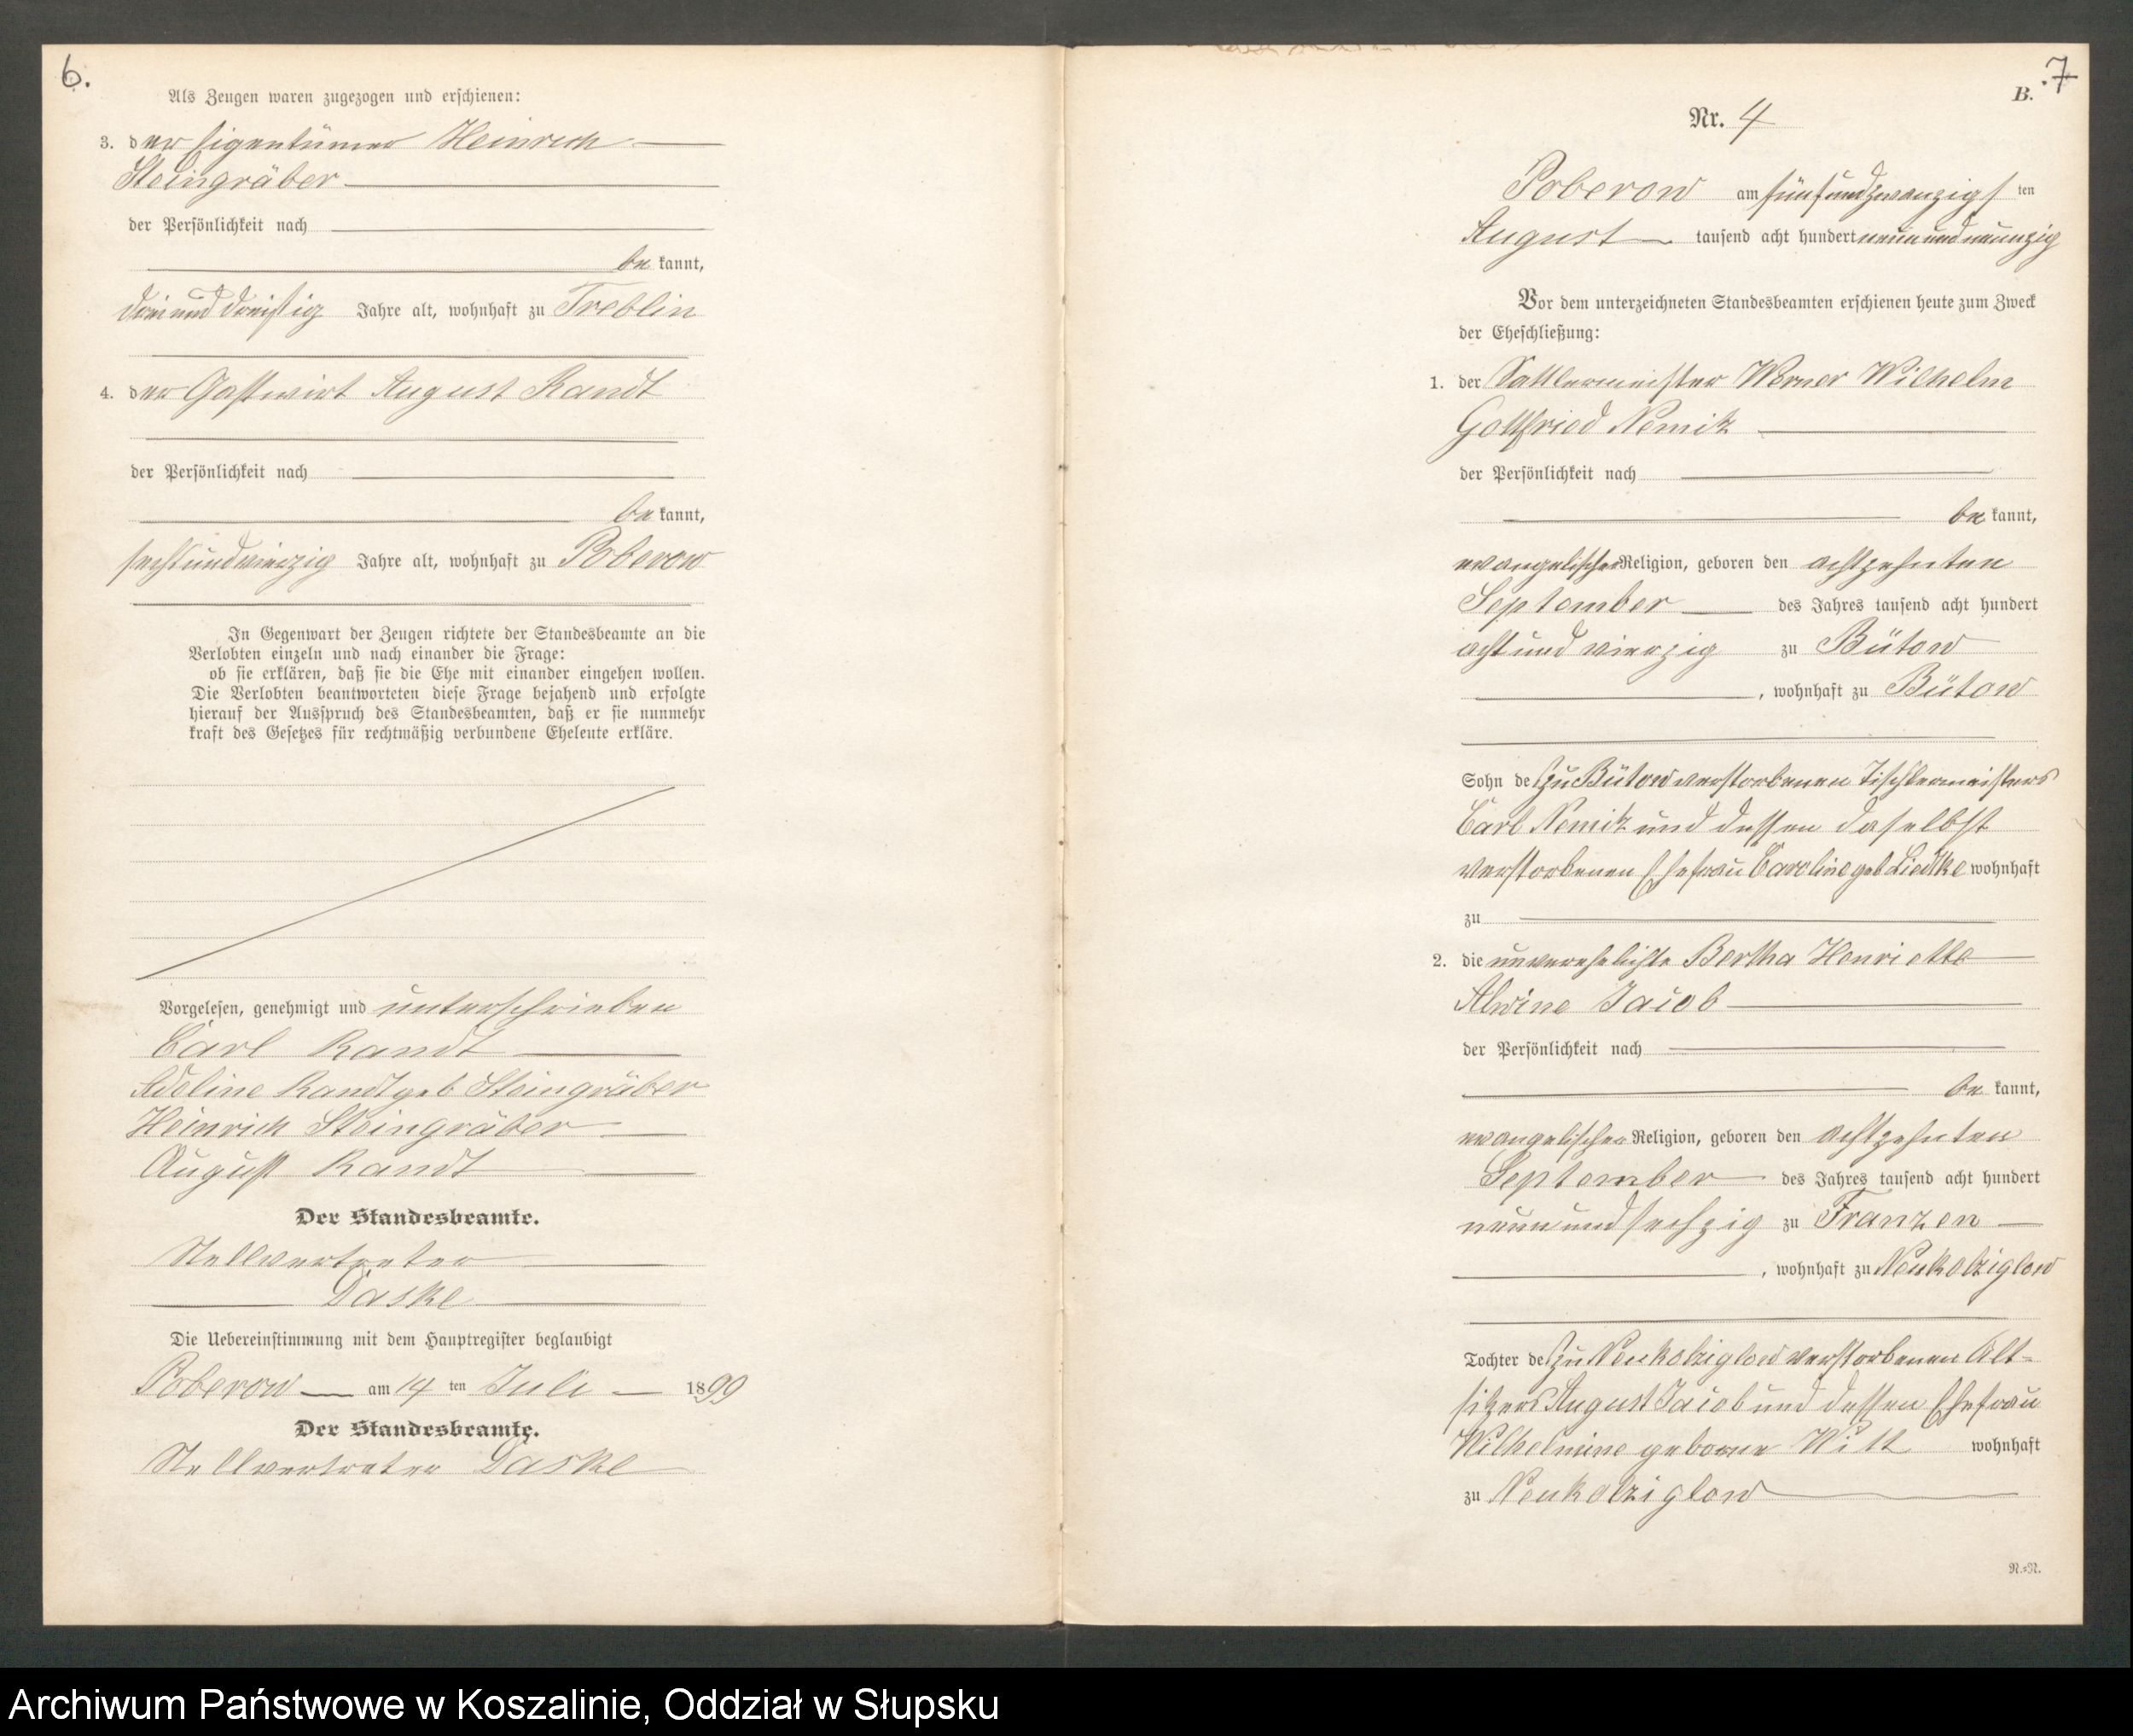 6.
Als Zeugen waren zugezogen und erschienen:
3. der Eigentümer Heinrich
Steingräber
der Persönlichkeit nach
bekannt,
dreiunddreißig Jahre alt, wohnhaft zu Treblin
4. der Gastwirt August Randt
der Persönlichkeit nach
bekannt,
sechsundvierzig Jahre alt, wohnhaft zu Poberow
In Gegenwart der Zeugen richtete der Standesbeamte an die
Verlobten einzeln und nach einander die Frage:
ob sie erklären, daß sie die Ehe mit einander eingehen wollen.
Die Verlobten beantworteten diese Frage bejahend und erfolgte
hierauf der Ausspruch des Standesbeamten, daß er sie nunmehr
kraft des Gesetzes für rechtmäßig verbundene Eheleute erkläre.
Vorgelesen, genehmigt und unterschrieben
Carl Randt
Adeline Randt geb Steingräber
Heinrich Steingräber
August Randt
Der Standesbeamte.
Stellvertreter
Daske
Die Uebereinstimmung mit dem Hauptregister beglaubigt
Poberow am 14 ten Juli 1899
Der Standesbeamte.
Stellvertreter Daske
7
B.
Nr. 4
Poberow am fünfundzwanzigsten
August tausend acht hundert neunundneunzig
Vor dem unterzeichneten Standesbeamten erschienen heute zum Zweck
der Eheschließung:
1. der Sattlermeister Werner Wilhelm
Gottfried Nemitz
der Persönlichkeit nach
bekannt,
evangelischer Religion, geboren den achtzehnten
September des Jahres tausend acht hundert
achtundvierzig zu Bütow
, wohnhaft zu Bütow
Sohn des zu Bütow verstorbenen Tischlermeisters
Carl Nemitz und dessen daselbst
verstorbenen Ehefrau Caroline geb Liedtke wohnhaft
zu
2. die unverehelichte Bertha Henriette
Alwine Jacob
der Persönlichkeit nach
bekannt,
evangelischer Religion, geboren den achtzehnten
September des Jahres tausend acht hundert
neunundsechzig zu Franzen
, wohnhaft zu Neukolziglow
Tochter des zu Neukolziglow verstorbenen Alt-
sitzers August Jacob und dessen Ehefrau
Wilhelmine geborne Witt wohnhaft
zu Neukolziglow
N.=N.
Archiwum Państwowe w Koszalinie, Oddział w Słupsku